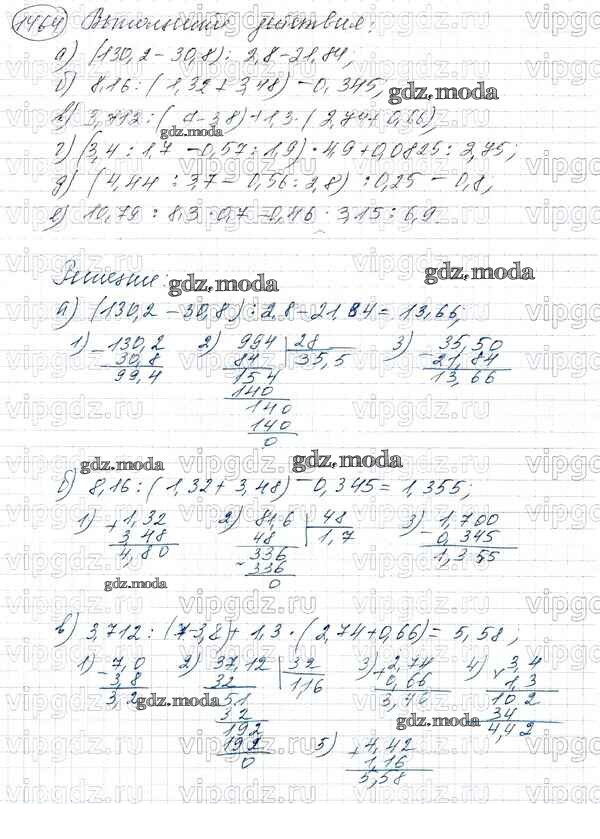 1464 Выполните действия:
а) (130,2 - 30,8) : 2,8 - 21,84;
б) 8,16 : (1,32 + 3,48) - 0,345;
gdz.moda
в) 3,712 : (7 - 3,8) + 1,3 · (2,74 + 0,66);
gdz.moda
г) (3,4 : 1,7 - 0,57 : 1,9) · 4,9 + 0,0825 : 2,75;
д) (4,44 : 3,7 - 0,56 : 2,8) : 0,25 - 0,8;
е) 10,79 : 8,3 · 0,7 - 0,46 · 3,15 : 6,9.
Решение:
gdz.moda
gdz.moda
а) (130,2 - 30,8) : 2,8 - 21,84 = 13,66;
1) 130,2 2) 994 28 3) 35,50
- 30,8 84 35,5 - 21,84
99,4 154 13,66
140
140
140
0
gdz.moda
gdz.moda
б) 8,16 : (1,32 + 3,48) - 0,345 = 1,355;
1) 1,32 2) 81,6 48 3) 1,700
+ 3,48 48 1,7 - 0,345
4,80 336 1,355
- 336
0
gdz.moda
в) 3,712 : (7 - 3,8) + 1,3 · (2,74 + 0,66) = 5,58;
1) 7,0 2) 37,12 32 3) 2,74 4) 3,4
- 3,8 32 1,16 + 0,66 × 1,3
3,2 51 3,40 102
gdz.moda
32 34
gdz.moda
192 5) 4,42 4,42
192 + 1,16
0 5,58
vipgdz.ru